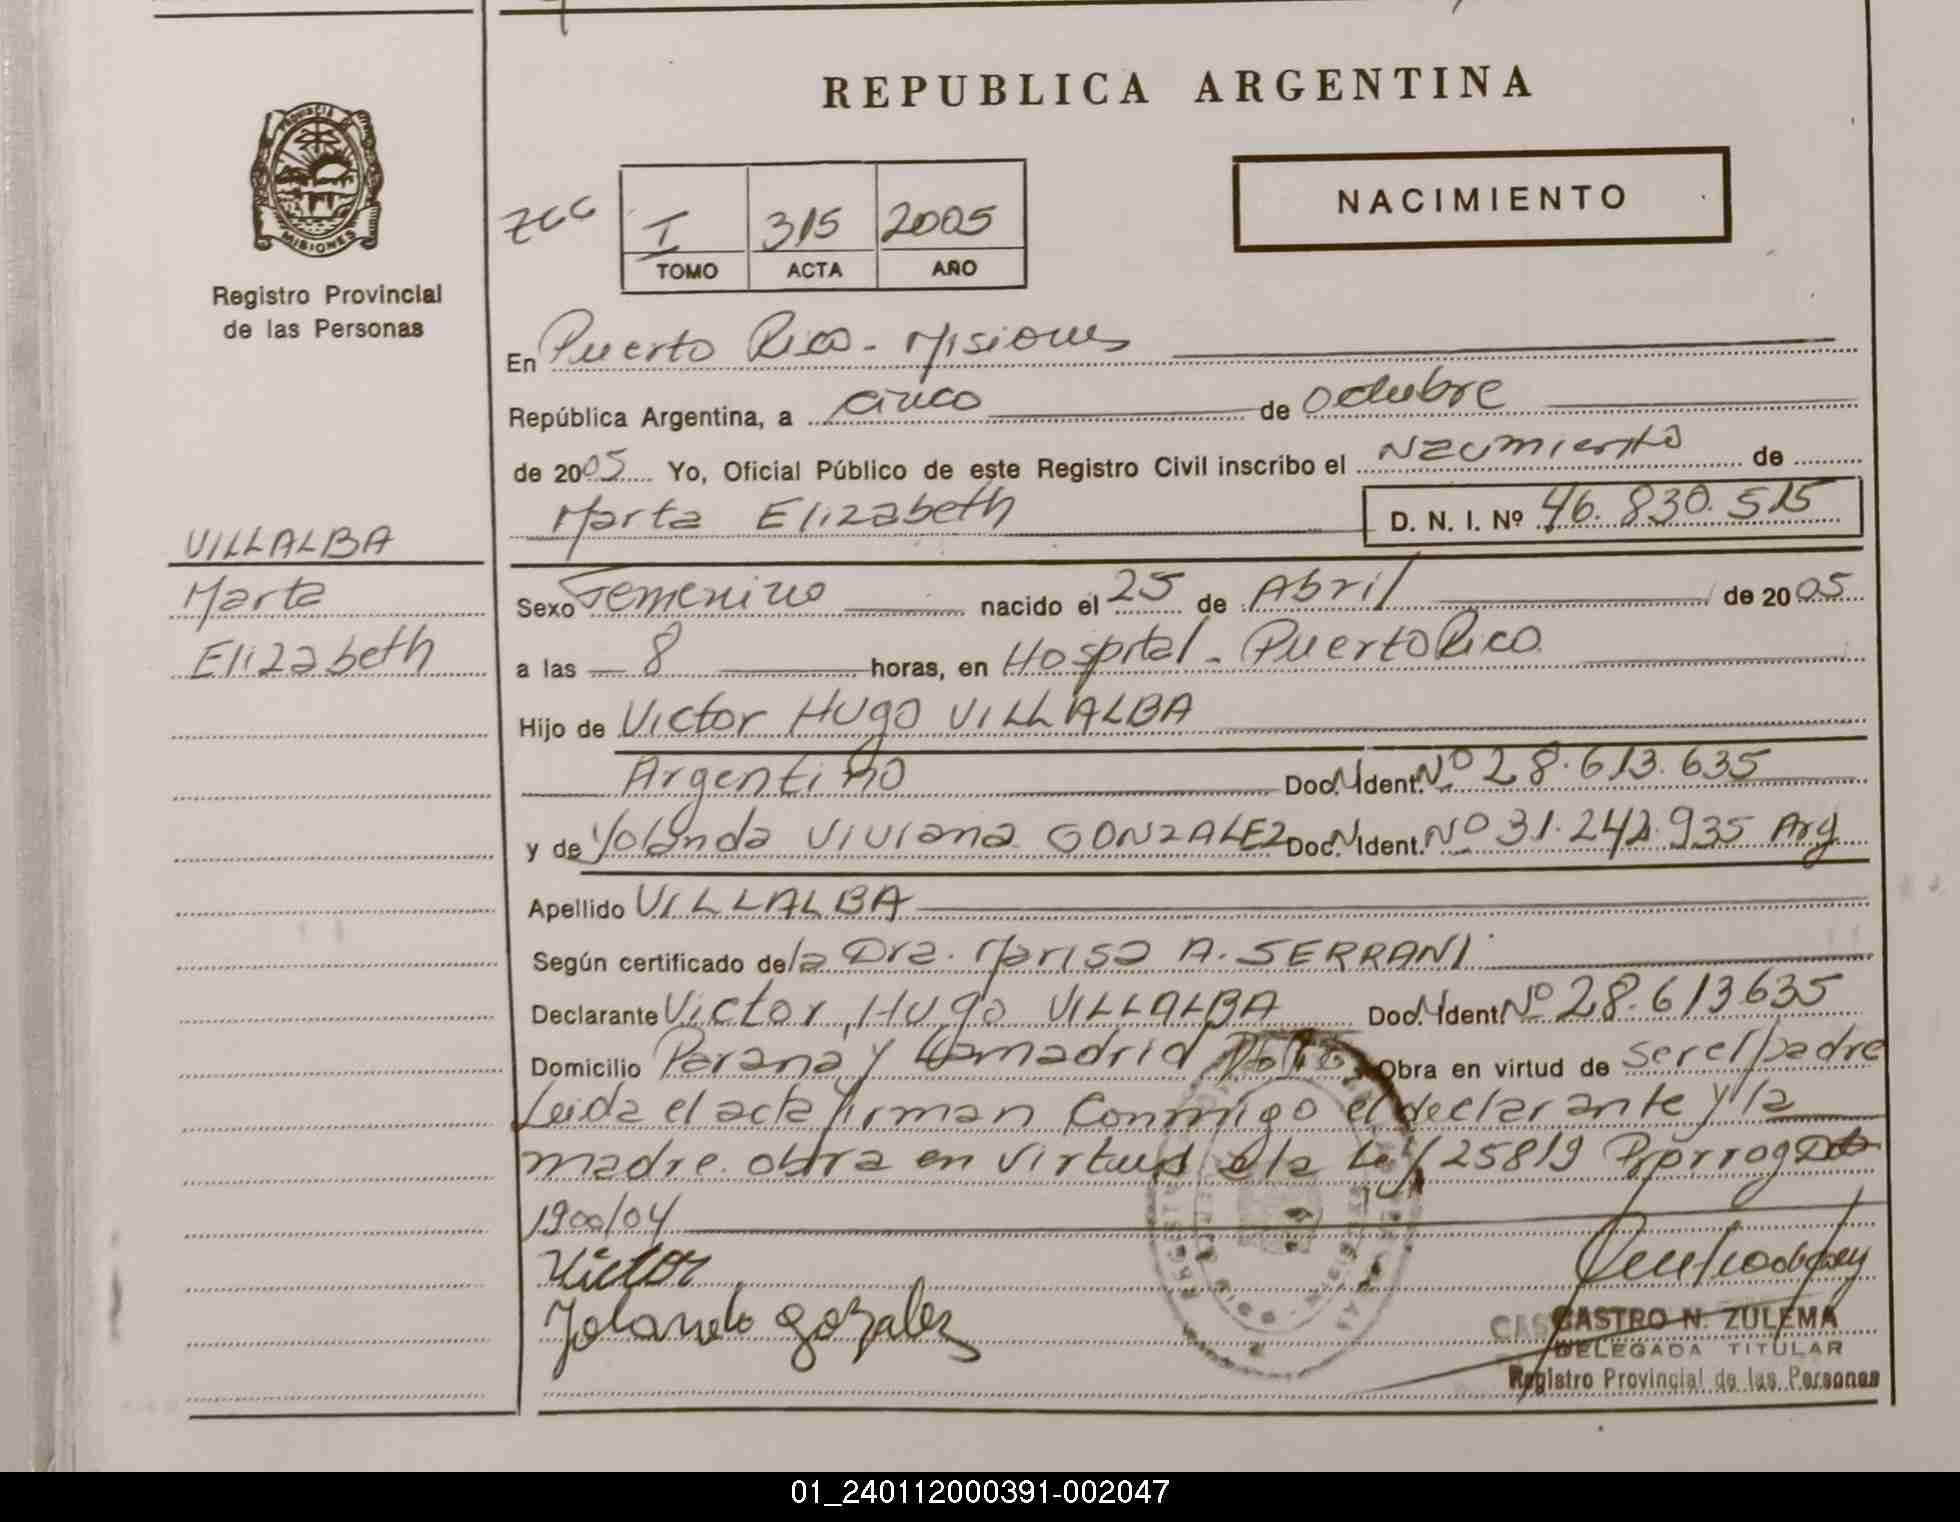 REPUBLICA ARGENTINA
PROVINCIA DE
MISIONES
Registro Provincial
de las Personas
NACIMIENTO
I 315 2005
TOMO ACTA AÑO
En Puerto Rico - Misiones
República Argentina, a cinco de octubre
de 2005 Yo, Oficial Público de este Registro Civil inscribo el Nacimiento de
Marta Elizabeth D. N. I. Nº 46.830.515
VILLALBA
Marta
Elizabeth
Sexo Femenino nacido el 25 de Abril de 2005
a las 8 horas, en Hospital - Puerto Rico
Hijo de Victor Hugo VILLALBA
Argentino Doc. Ident. Nº 28.613.635
y de Yolanda Viviana GONZALEZ Doc. Ident. Nº 31.242.935 Arg
Apellido VILLALBA
Según certificado de la Dra. Marisa A. SERRANI
Declarante Victor Hugo VILLALBA Doc. Ident. Nº 28.613635
Domicilio Parana y Lamadrid Obra en virtud de ser el padre
Leida el acta firman conmigo el declarante y la
madre. obra en virtud de la Ley 25819
1900/04
Victor
Yolanda gozalez
CASTRO N. ZULEMA
DELEGADA TITULAR
Registro Provincial de las Personas
01_240112000391-002047